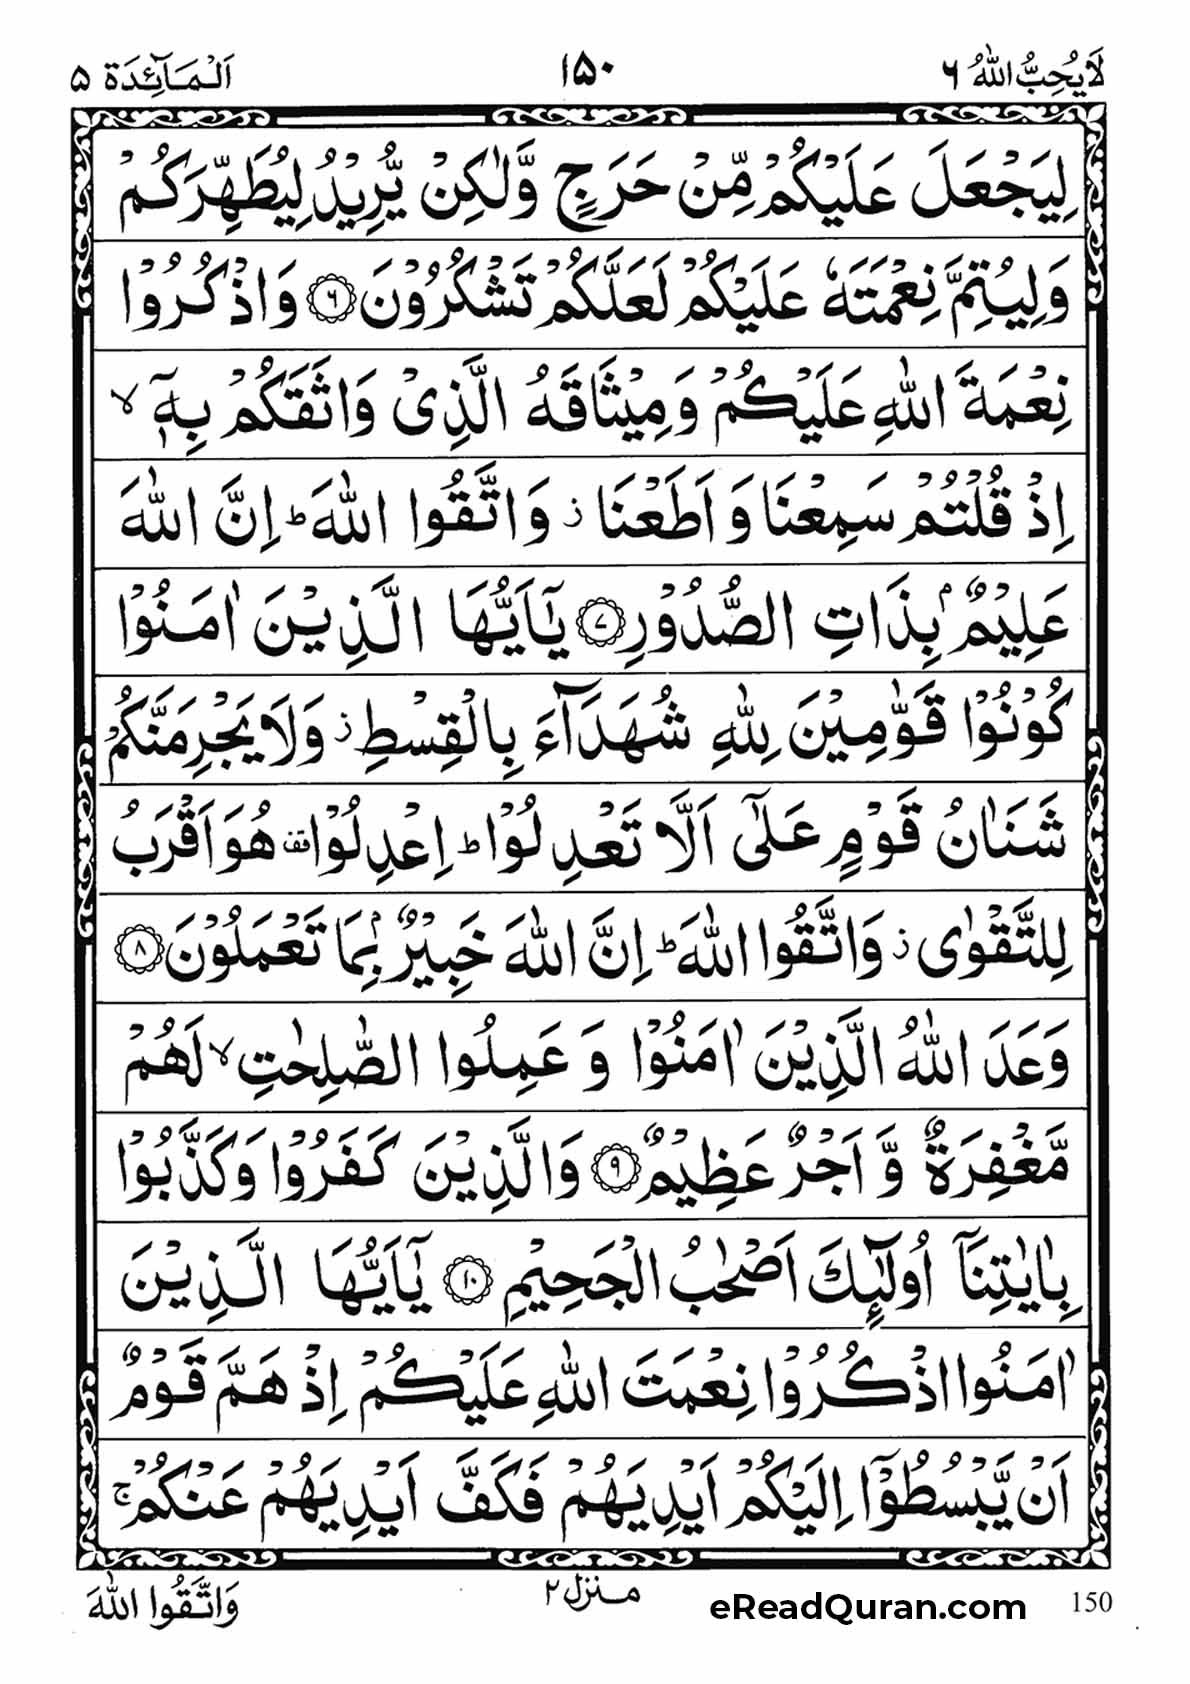 لَا يُحِبُّ اللّٰهُ ٦ ١٥٠ اَلْمَآئِدَة ٥
لِيَجْعَلَ عَلَيْكُمْ مِّنْ حَرَجٍ وَّلٰكِنْ يُّرِيْدُ لِيُطَهِّرَكُمْ
وَلِيُتِمَّ نِعْمَتَهٗ عَلَيْكُمْ لَعَلَّكُمْ تَشْكُرُوْنَ ٦ وَاذْكُرُوْا
نِعْمَةَ اللّٰهِ عَلَيْكُمْ وَمِيْثَاقَهُ الَّذِیْ وَاثَقَكُمْ بِهٖۤ ۙ
اِذْ قُلْتُمْ سَمِعْنَا وَ اَطَعْنَا ز وَاتَّقُوا اللّٰهَ ؕ اِنَّ اللّٰهَ
عَلِيْمٌۢ بِذَاتِ الصُّدُوْرِ ٧ يٰۤاَيُّهَا الَّذِيْنَ اٰمَنُوْا
كُوْنُوْا قَوّٰمِيْنَ لِلّٰهِ شُهَدَآءَ بِالْقِسْطِ ز وَلَا يَجْرِمَنَّكُمْ
شَنَاٰنُ قَوْمٍ عَلٰۤی اَلَّا تَعْدِلُوْا ؕ اِعْدِلُوْا قف هُوَ اَقْرَبُ
لِلتَّقْوٰی ز وَاتَّقُوا اللّٰهَ ؕ اِنَّ اللّٰهَ خَبِيْرٌۢ بِمَا تَعْمَلُوْنَ ٨
وَعَدَ اللّٰهُ الَّذِيْنَ اٰمَنُوْا وَ عَمِلُوا الصّٰلِحٰتِ ۙ لَهُمْ
مَّغْفِرَةٌ وَّ اَجْرٌ عَظِيْمٌ ٩ وَالَّذِيْنَ كَفَرُوْا وَكَذَّبُوْا
بِاٰيٰتِنَاۤ اُولٰٓئِكَ اَصْحٰبُ الْجَحِيْمِ ١٠ يٰۤاَيُّهَا الَّذِيْنَ
اٰمَنُوا اذْكُرُوْا نِعْمَتَ اللّٰهِ عَلَيْكُمْ اِذْ هَمَّ قَوْمٌ
اَنْ يَّبْسُطُوْۤا اِلَيْكُمْ اَيْدِيَهُمْ فَكَفَّ اَيْدِيَهُمْ عَنْكُمْ ۚ
وَاتَّقُوا اللّٰهَ منزل ٢ eReadQuran.com 150